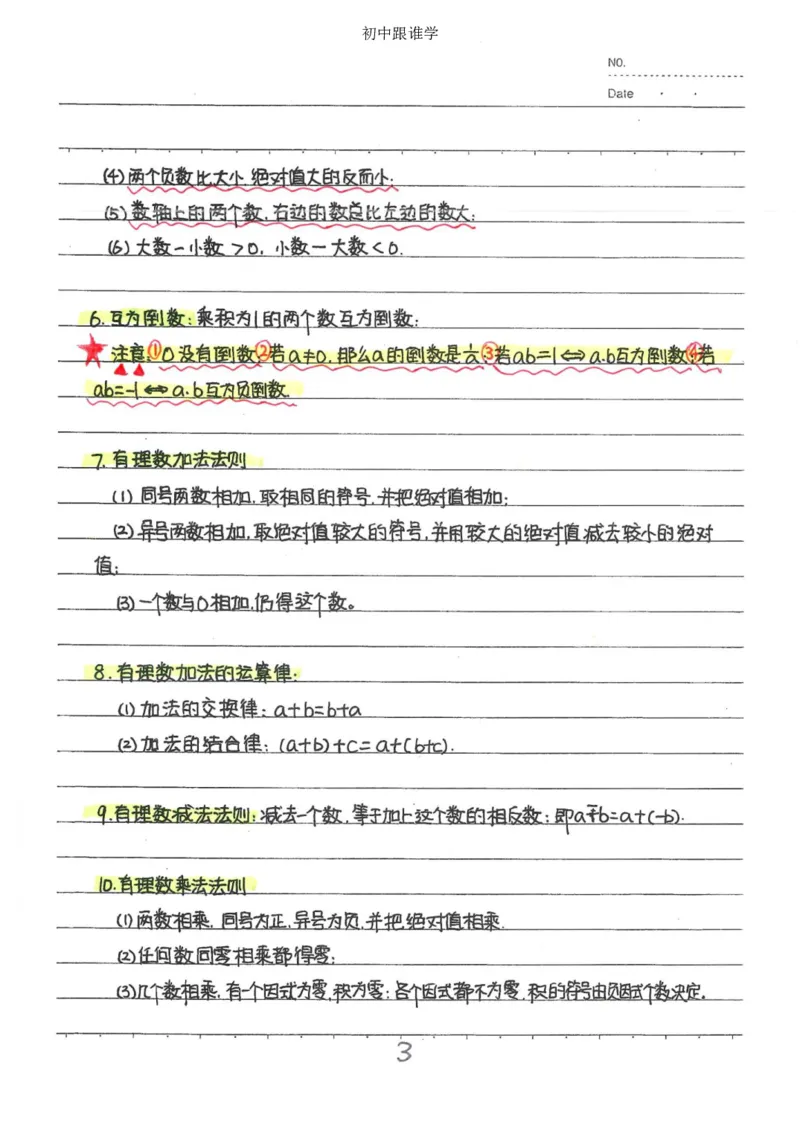 初中跟谁学
NO.
Date
(4)两个负数比大小,绝对值大的反而小;
(5)数轴上的两个数,右边的数总比左边的数大;
(6)大数-小数>0, 小数-大数<0.
6.互为倒数:乘积为1的两个数互为倒数;
★注意:①0没有倒数②若a≠0,那么a的倒数是1/a;③若ab=1⇔a.b互为倒数;④若
ab=-1⇔a.b互为负倒数.
7.有理数加法法则
(1)同号两数相加,取相同的符号,并把绝对值相加;
(2)异号两数相加,取绝对值较大的符号,并用较大的绝对值减去较小的绝对
值;
(3)一个数与0相加,仍得这个数。
8.有理数加法的运算律:
(1)加法的交换律:a+b=b+a
(2)加法的结合律:(a+b)+c=a+(b+c).
9.有理数减法法则:减去一个数,等于加上这个数的相反数;即a-b=a+(-b).
10.有理数乘法法则
(1)两数相乘,同号为正,异号为负,并把绝对值相乘.
(2)任何数同零相乘都得零;
(3)几个数相乘,有一个因式为零,积为零;各个因式都不为零,积的符号由负因式个数决定.
3